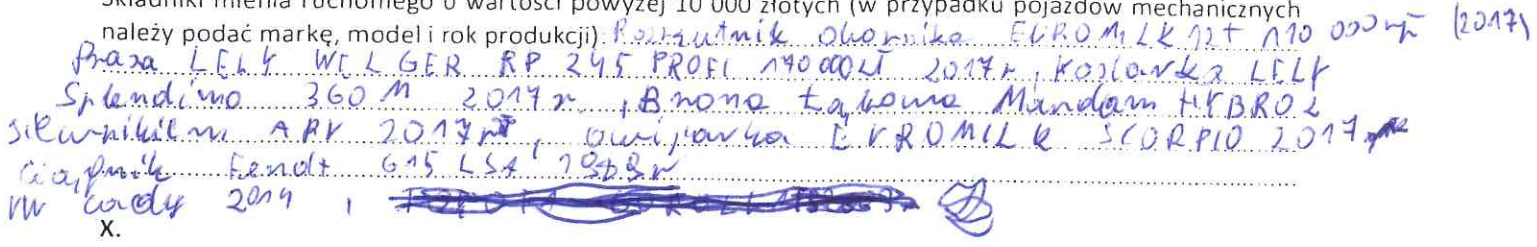 Składniki mienia ruchomego o wartości powyżej 10 000 złotych (w przypadku pojazdów mechanicznych
należy podać markę, model i rok produkcji): Rozrzutnik obornika EUROMILK 12t 110 000 zł (2017)
Prasa LELY WELGER RP 245 PROFI 170 000 zł 2017r, Kosiarka LELY
Splendimo 360 M 2017 r, Brona Łąkowa Mandam HYBRO 2
siewnikiem APV 2017r, owijarka EUROMILK SCORPIO 2017
Ciągnik Fendt 615 LSA
VW caddy 2014,
X.